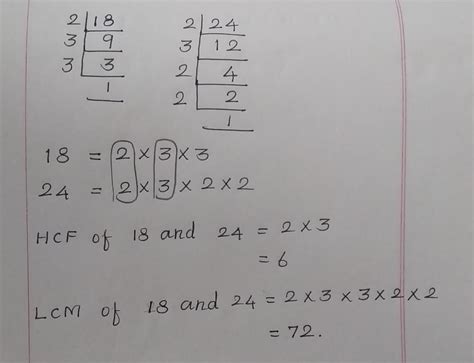 2 | 18    2 | 24
3 | 9    3 | 12
3 | 3    2 | 4
1    2 | 2
1
18 = 2 × 3 × 3
24 = 2 × 3 × 2 × 2
HCF of 18 and 24 = 2 × 3
= 6
LCM of 18 and 24 = 2 × 3 × 3 × 2 × 2
= 72.